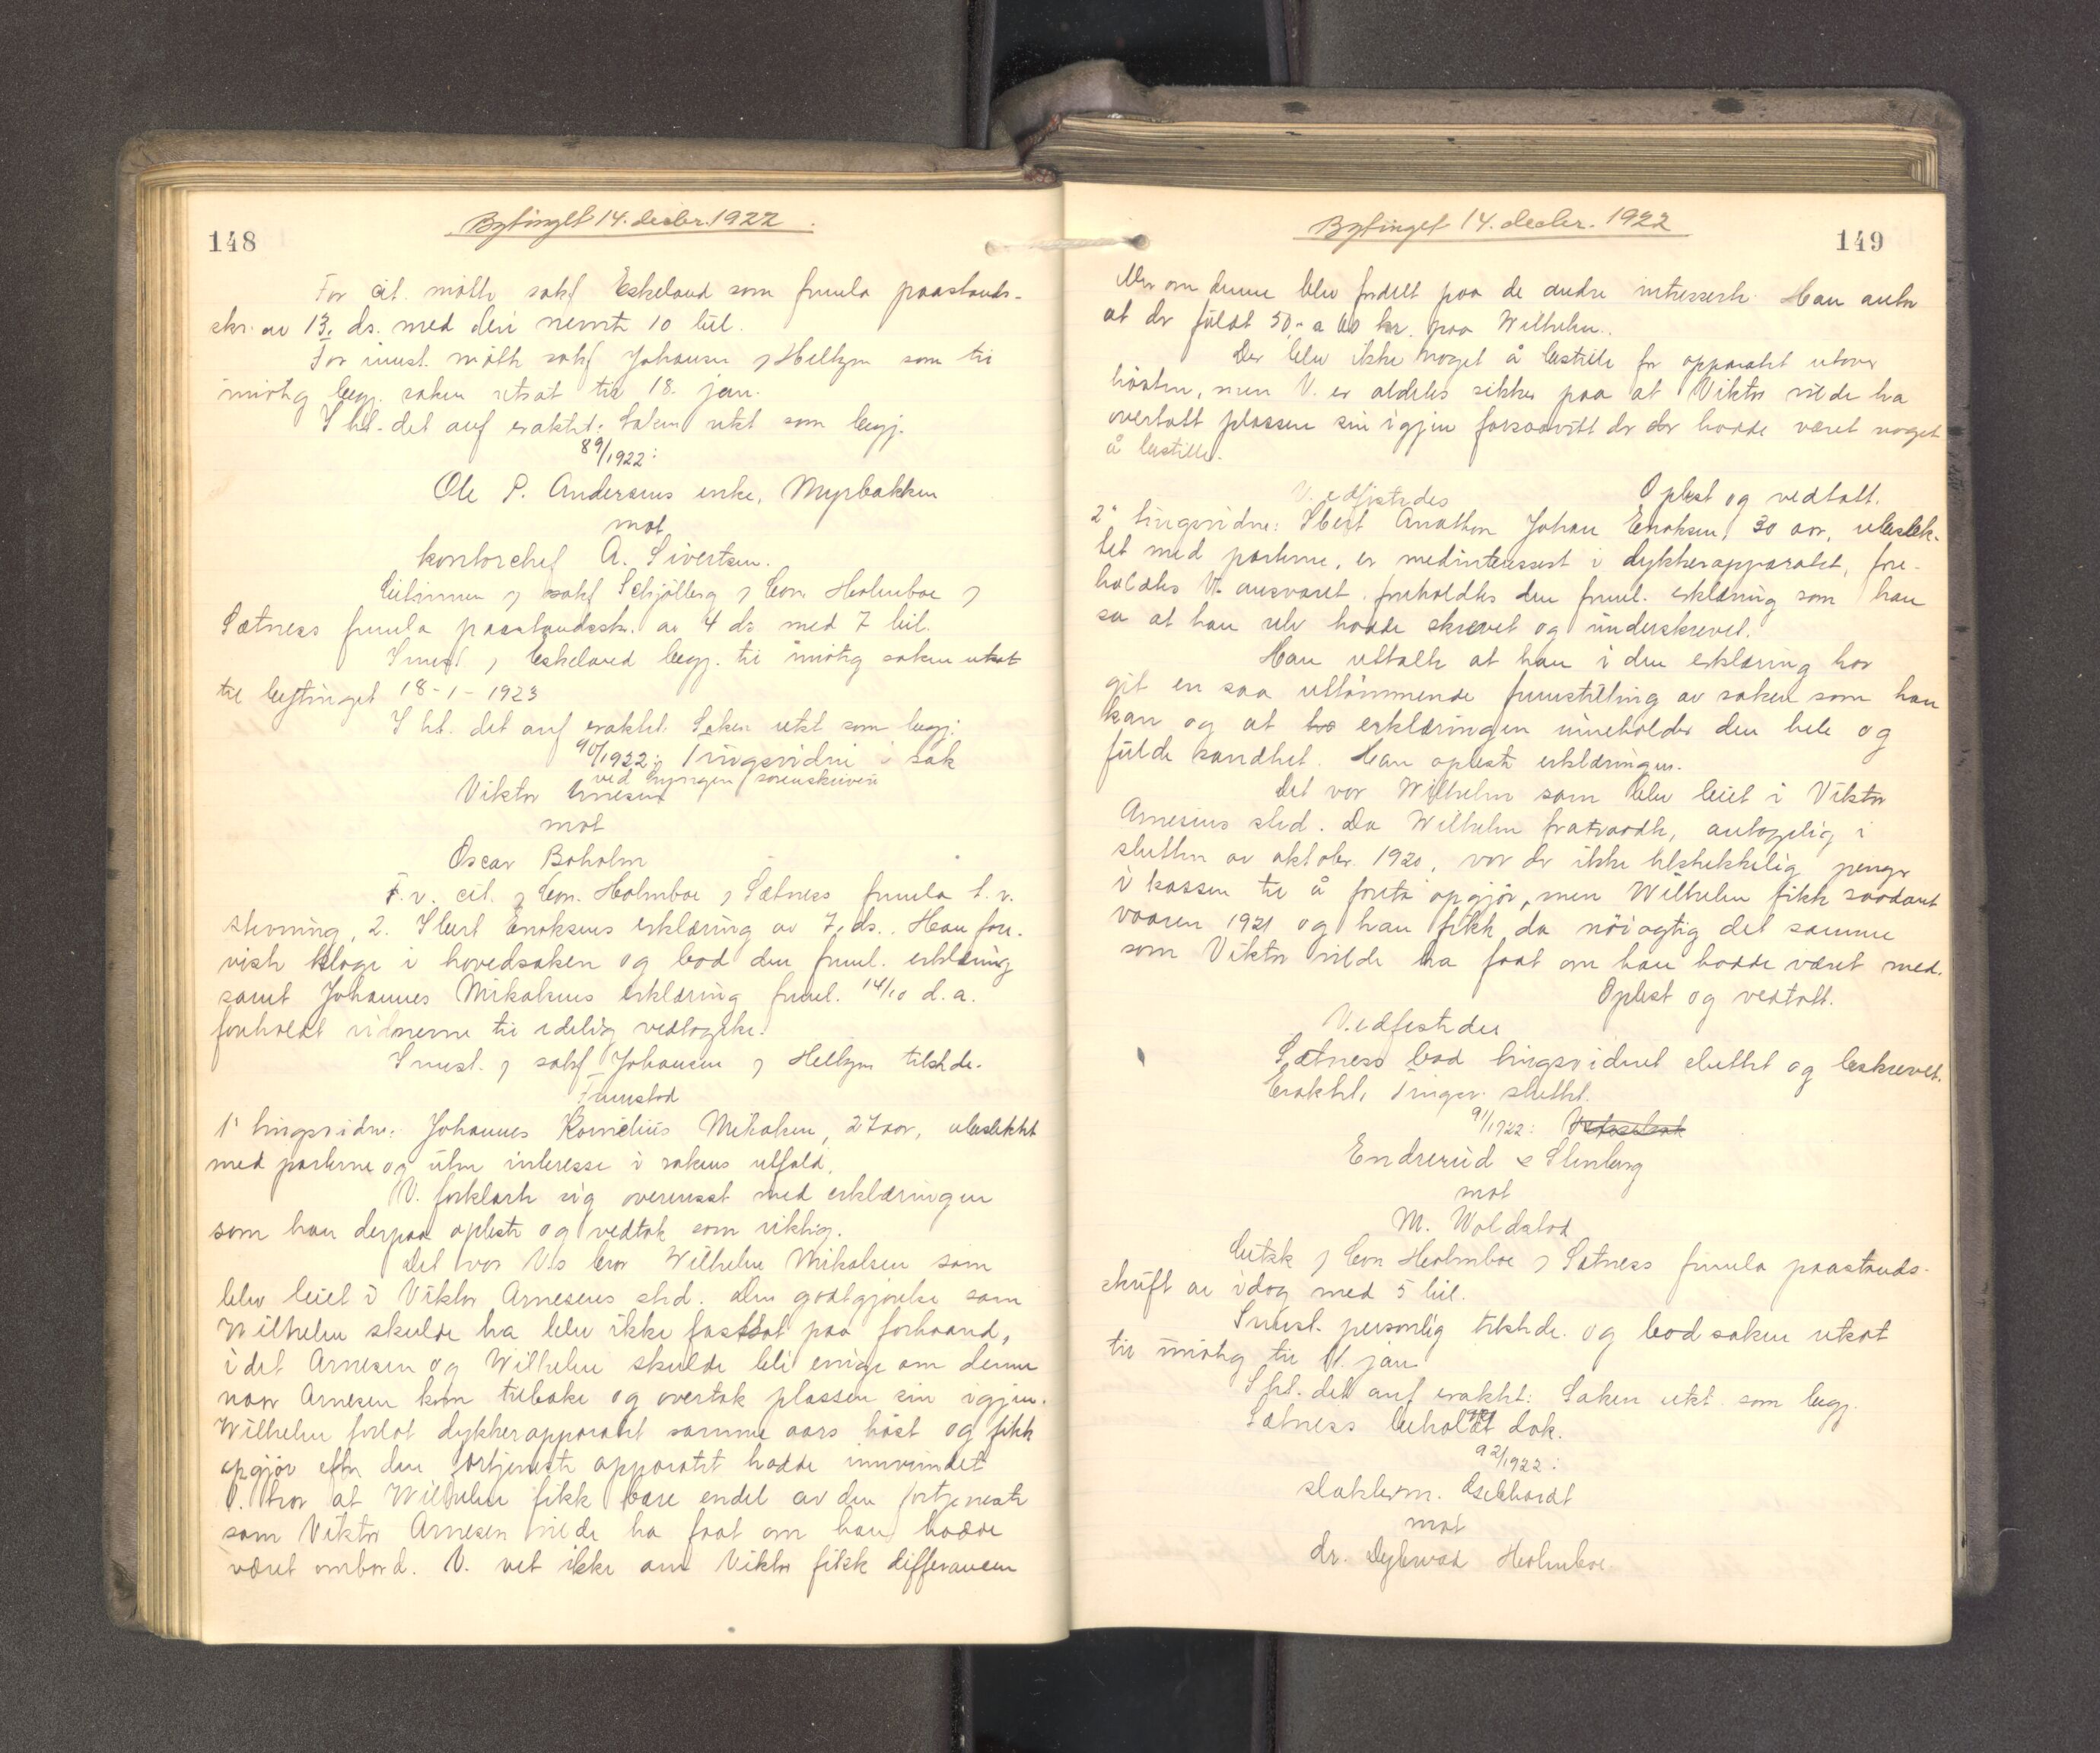 148
Bytinget 14. decbr. 1922.
For cit. møtte sakf Eskeland som freml a paastands-
skr. av 13. ds. med deri nevnte 10 bil.
For innst. møtte sakf Johansen / Hellzen som til
imøtg begj. saken utsat til 18. jan.
I hh. det anf eraktet: Saken utst som begj.
89/1922:
Ole P. Andersens enke, Myrbakken
mot
kontorchef A. Sivertsen.
Citinnen / sakf Schjölberg / Con. Holmboe /
Sætness freml a paastandsskr. av 4 ds med 7 bil.
Innst / Eskeland begj. til imøtg saken utsat
til bytinget 18-1-1923
I hh. det anf eraktet: Saken utst som begj:
90/1922: Tingsvidne i sak
ved Lyngen sorenskriveri
Viktor Arnesen
mot
Oscar Boholm
F. v. cit. / Con. Holmboe / Sætness freml a t. v.
stevning, 2. Sbert Enoksens erklæring av 7. ds. Han fore-
viste klage i hovedsaken og bad den freml. erklæring
samt Johannes Mikalsens erklæring freml. 14/10 d.a.
foreholdt vidnerne til edelig vedtagelse.
Innst. / sakf Johansen / Hellzen tilstede.
Fremstod
1' tingsvidne: Johannes Kornelius Mikalsen, 27 aar, ubeslektet
med parterne og uten interesse i sakens utfald.
V. forklarte sig overensst med erklæringen
som han derpaa opleste og vedtok som riktig.
Det var V's bror Wilhelm Mikalsen som
blev leiet i Viktor Arnesens sted. Den godtgjørelse som
Wilhelm skulde ha blev ikke fastsat paa forhaand,
idet Arnesen og Wilhelm skulde bli enige om denne
naar Arnesen kom tilbake og overtok plassen sin igjen.
Wilhelm forlot dykkerapparatet samme aars høst og fikk
opgjør efter den fortjeneste apparatet hadde innvundet
V. tror at Wilhelm fikk bare endel av den fortjeneste
som Viktor Arnesen vilde ha faat om han hadde
været ombord. V. vet ikke om Viktor fikk differancen
149
Bytinget 14. decbr. 1922
eller om denne blev fordelt paa de andre interesserte. Han antar
at der faldt 50,- a 60 kr. paa Wilhelm.
Der blev ikke noget å bestille for apparatet utover
høsten, men V. er aldeles sikker paa at Viktor vilde ha
overtatt plassen sin igjen forsaavitt der der hadde været noget
å bestille.
Oplest og vedtatt.
V. edfestedes
2' tingsvidne: Sbert Anathon Johan Enoksen, 30 aar, ubeslek-
tet med parterne, er medinteressert i dykkerapparatet, fore-
holdtes V. ansvaret. foreholdtes den freml. erklæring som han
sa at han selv hadde skrevet og underskrevet.
Han uttalte at han i den erklæring har
git en saa uttømmende fremstilling av saken som han
kan og at erklæringen inneholder den hele og
fulde sandhet. Han opleste erklæringen.
Det var Wilhelm som blev leiet i Viktor
Arnesens sted. Da Wilhelm fratraadte, antagelig i
slutten av oktober 1920, var der ikke tilstrekkelig penger
i kassen til å foreta opgjør, men Wilhelm fikk saadant
vaaren 1921 og han fikk da nøiagtig det samme
som Viktor vilde ha faat om han hadde været med.
Oplest og vedtatt.
V. edfestedes
Sætness bad tingsvidnet sluttet og beskrevet.
Eraktet, Tingsv. sluttet.
91/1922:
Endrerud & Stenberg
mot
M. Woldstad
Citsk / Con Holmboe / Sætness freml a paastands-
skrift av idag med 5 bil.
Innst. personlig tilstede og bad saken utsat
til imøtg til 11. jan
I hh. det anf eraktet: Saken utst. som begj.
Sætness beholdt dok.
92/1922:
slakterm. Gebhardt
mot
dr. Dybwad Holmboe.